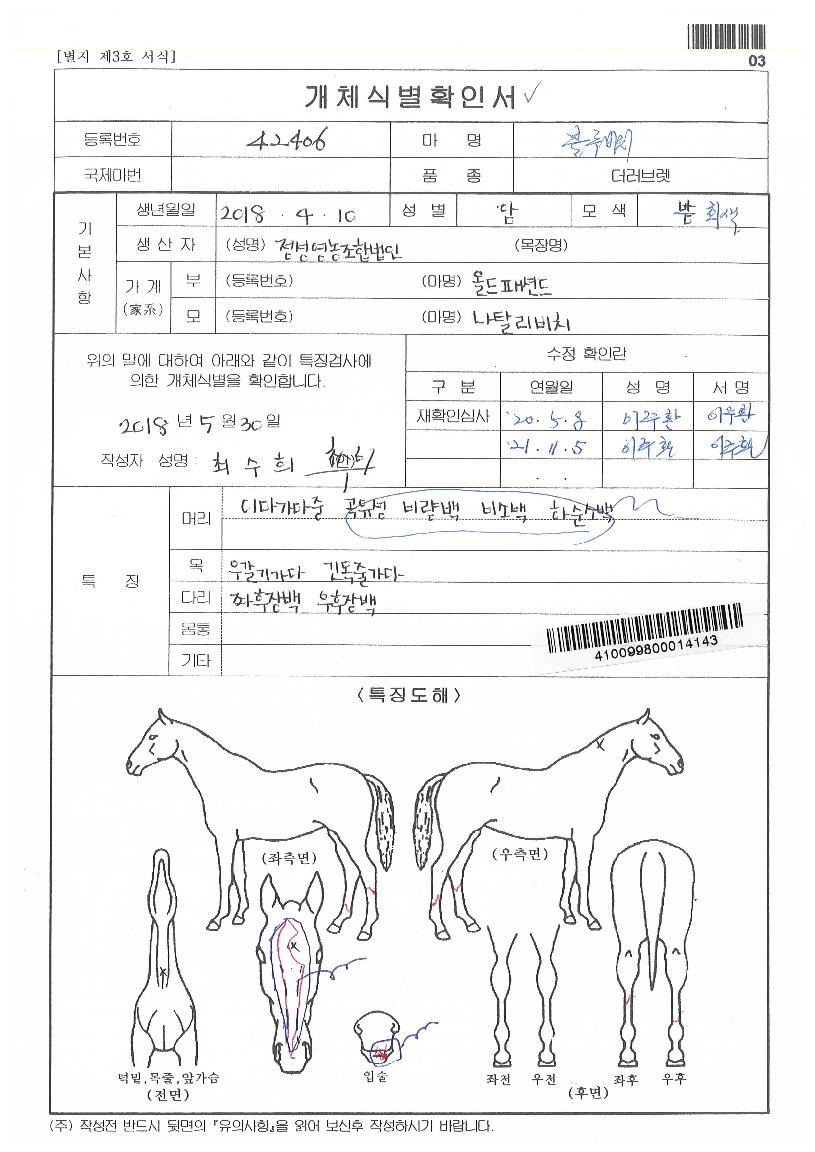 03
[별지 제3호 서식]
개체식별확인서
등록번호 42406 마 명 블루비치
국제마번 품 종 더러브렛
기본사항
생년월일 2018 . 4 . 10 성 별 암 모 색 회색
생 산 자 (성명) 정성영농조합법인 (목장명)
가 계 (家系)
부 (등록번호) (마명) 올드패션드
모 (등록번호) (마명) 나탈리비치
위의 말에 대하여 아래와 같이 특징검사에
의한 개체식별을 확인합니다.
2018 년 5 월 30 일
작성자 성명 : 최 수 희
수정 확인란
구 분 연월일 성 명 서 명
재확인심사 '20. 5. 8 이주환 이주환
'21. 11. 5 이주환 이주환
. .
특 징
머리 이다가다중 곡유성 비량백 비소백 하순소백
목 우갈기가다 긴목줄가다
다리 좌후장백 우후장백
몸통
기타
410099800014143
<특징도해>
(좌측면) (우측면)
턱밑,목줄,앞가슴
(전면)
입술
좌전 우전 좌후 우후
(후면)
(주) 작성전 반드시 뒷면의 『유의사항』을 읽어 보신후 작성하시기 바랍니다.